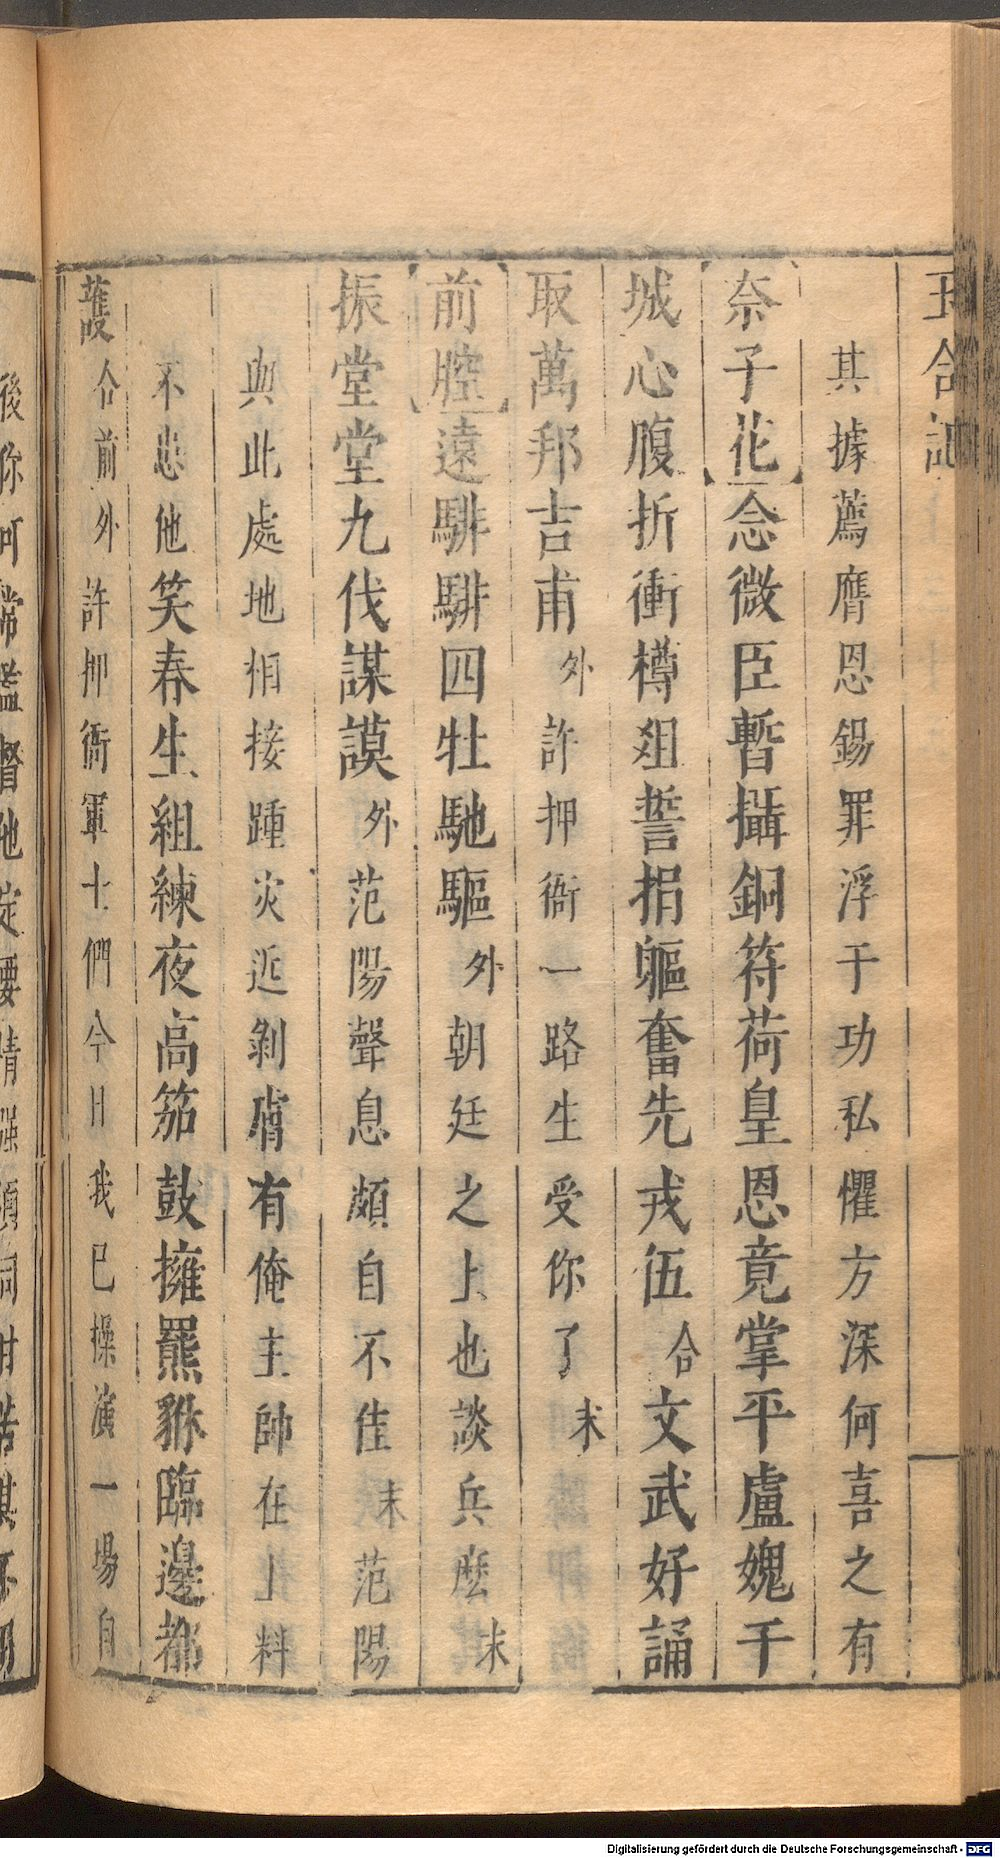 玉合記
其據薦膺恩錫罪浮于功私懼方深何喜之有
【奈子花】念微臣暫攝銅符荷皇恩竟掌平盧媿干
城心腹折衝樽俎誓捐軀奮先戎伍合文武好誦
取萬邦吉甫外許押衙一路生受你了末
【前腔】遠騑騑四牡馳驅外朝廷之上也談兵麽末
振堂堂九伐謀謨外范陽聲息頗自不佳末范陽
與此處地相接踵灾近剝膚有俺主帥在上料
不悲他笑春生組練夜高笳鼓擁羆貅臨邊都
護合前外許押衙軍士們今日我已操演一場自
後你可常
督他
Digitalisierung gefördert durch die Deutsche Forschungsgemeinschaft - DFG